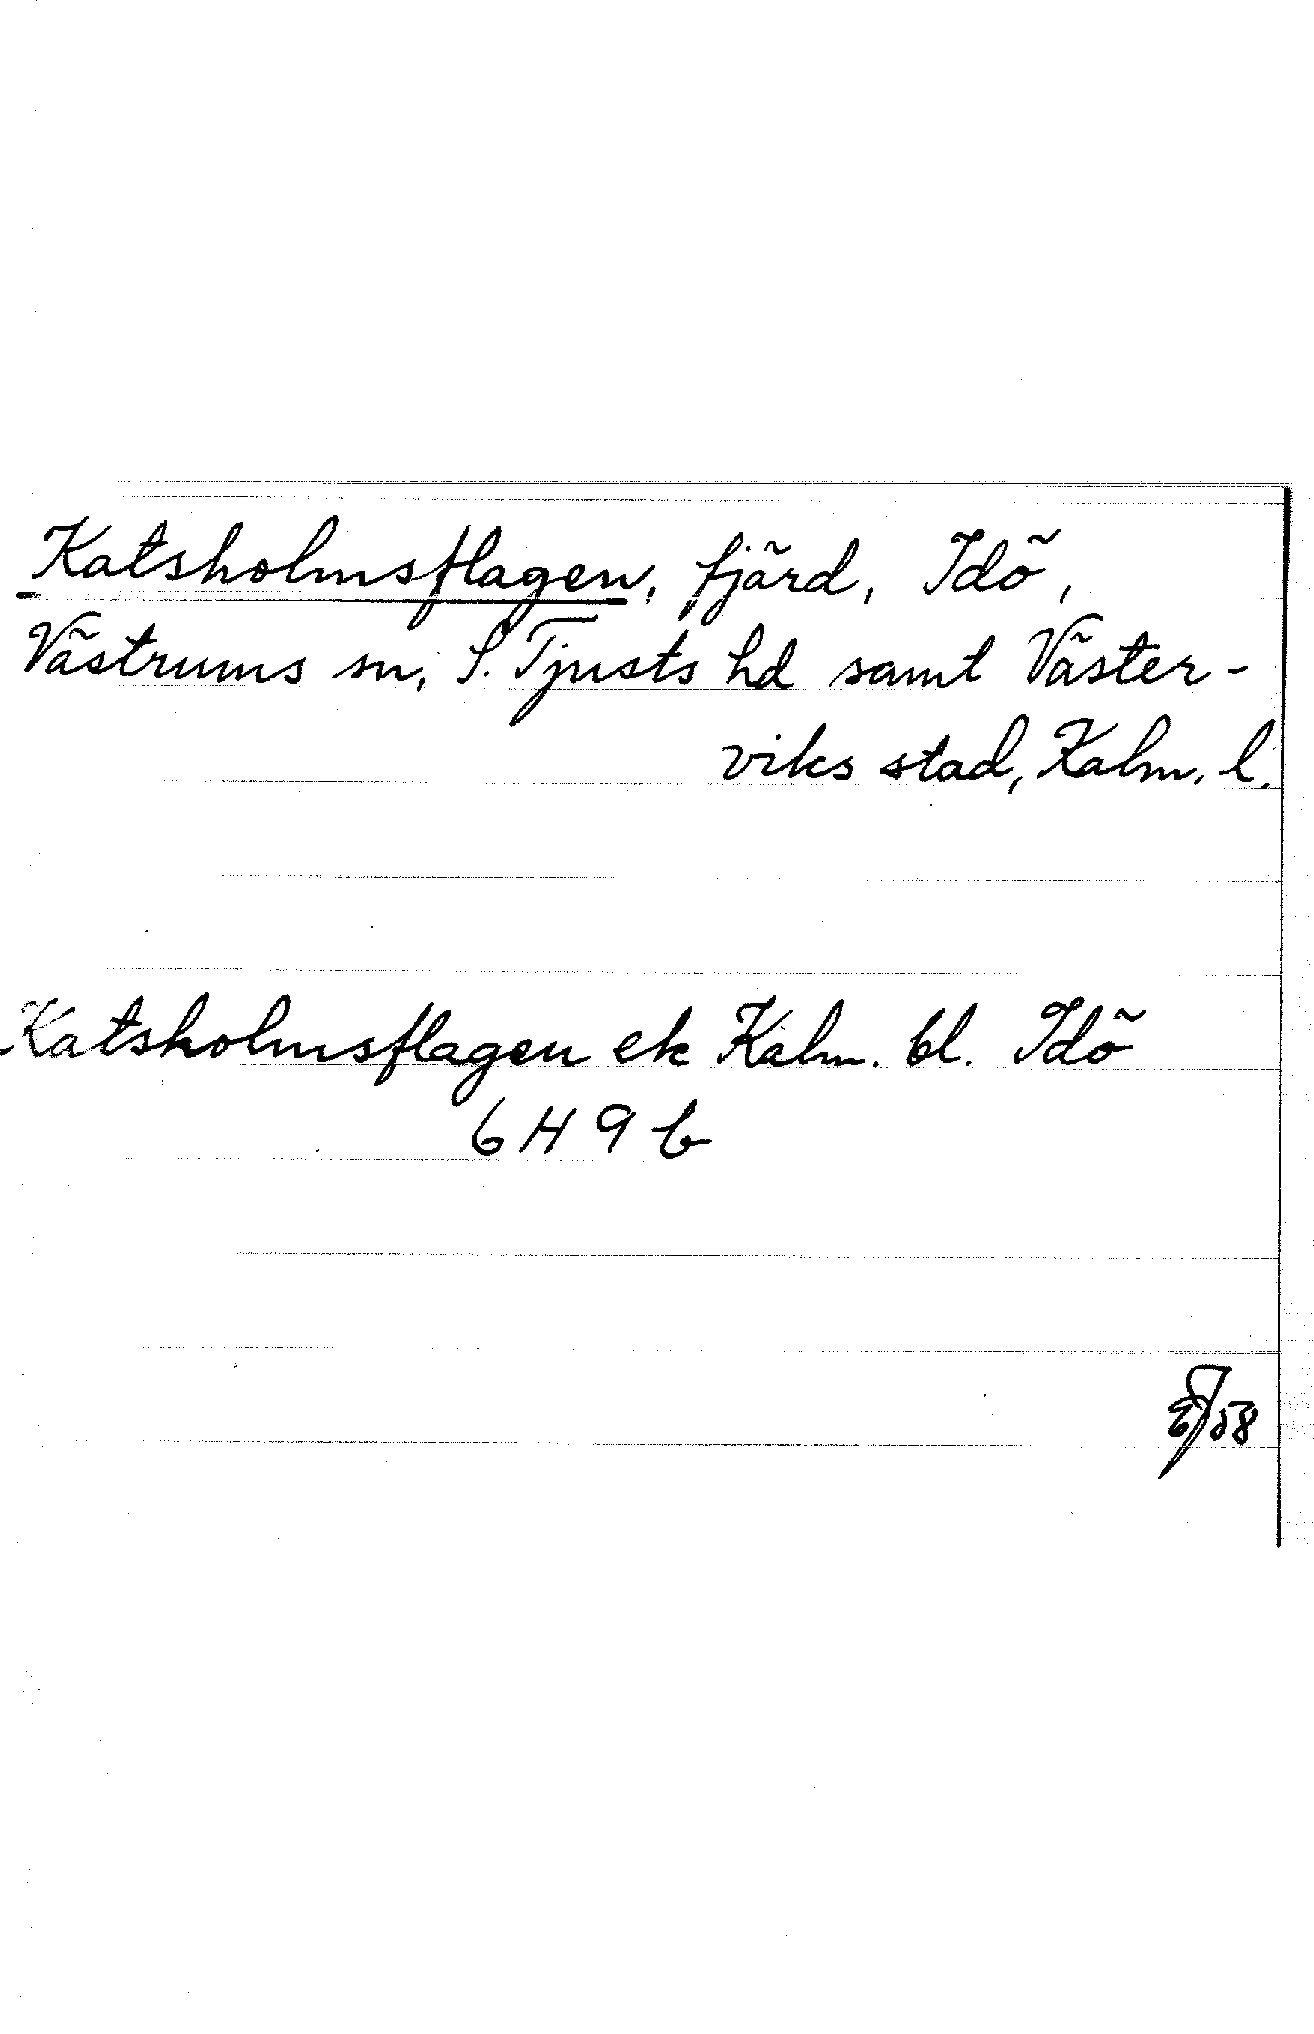 Katsholmsflagen, fjärd, Idö,
Västrums sn, S. Tjusts hd samt Väster-
viks stad, Kalm. l.
Katsholmsflagen ek Kalm. bl. Idö
6 H 9 b
/58